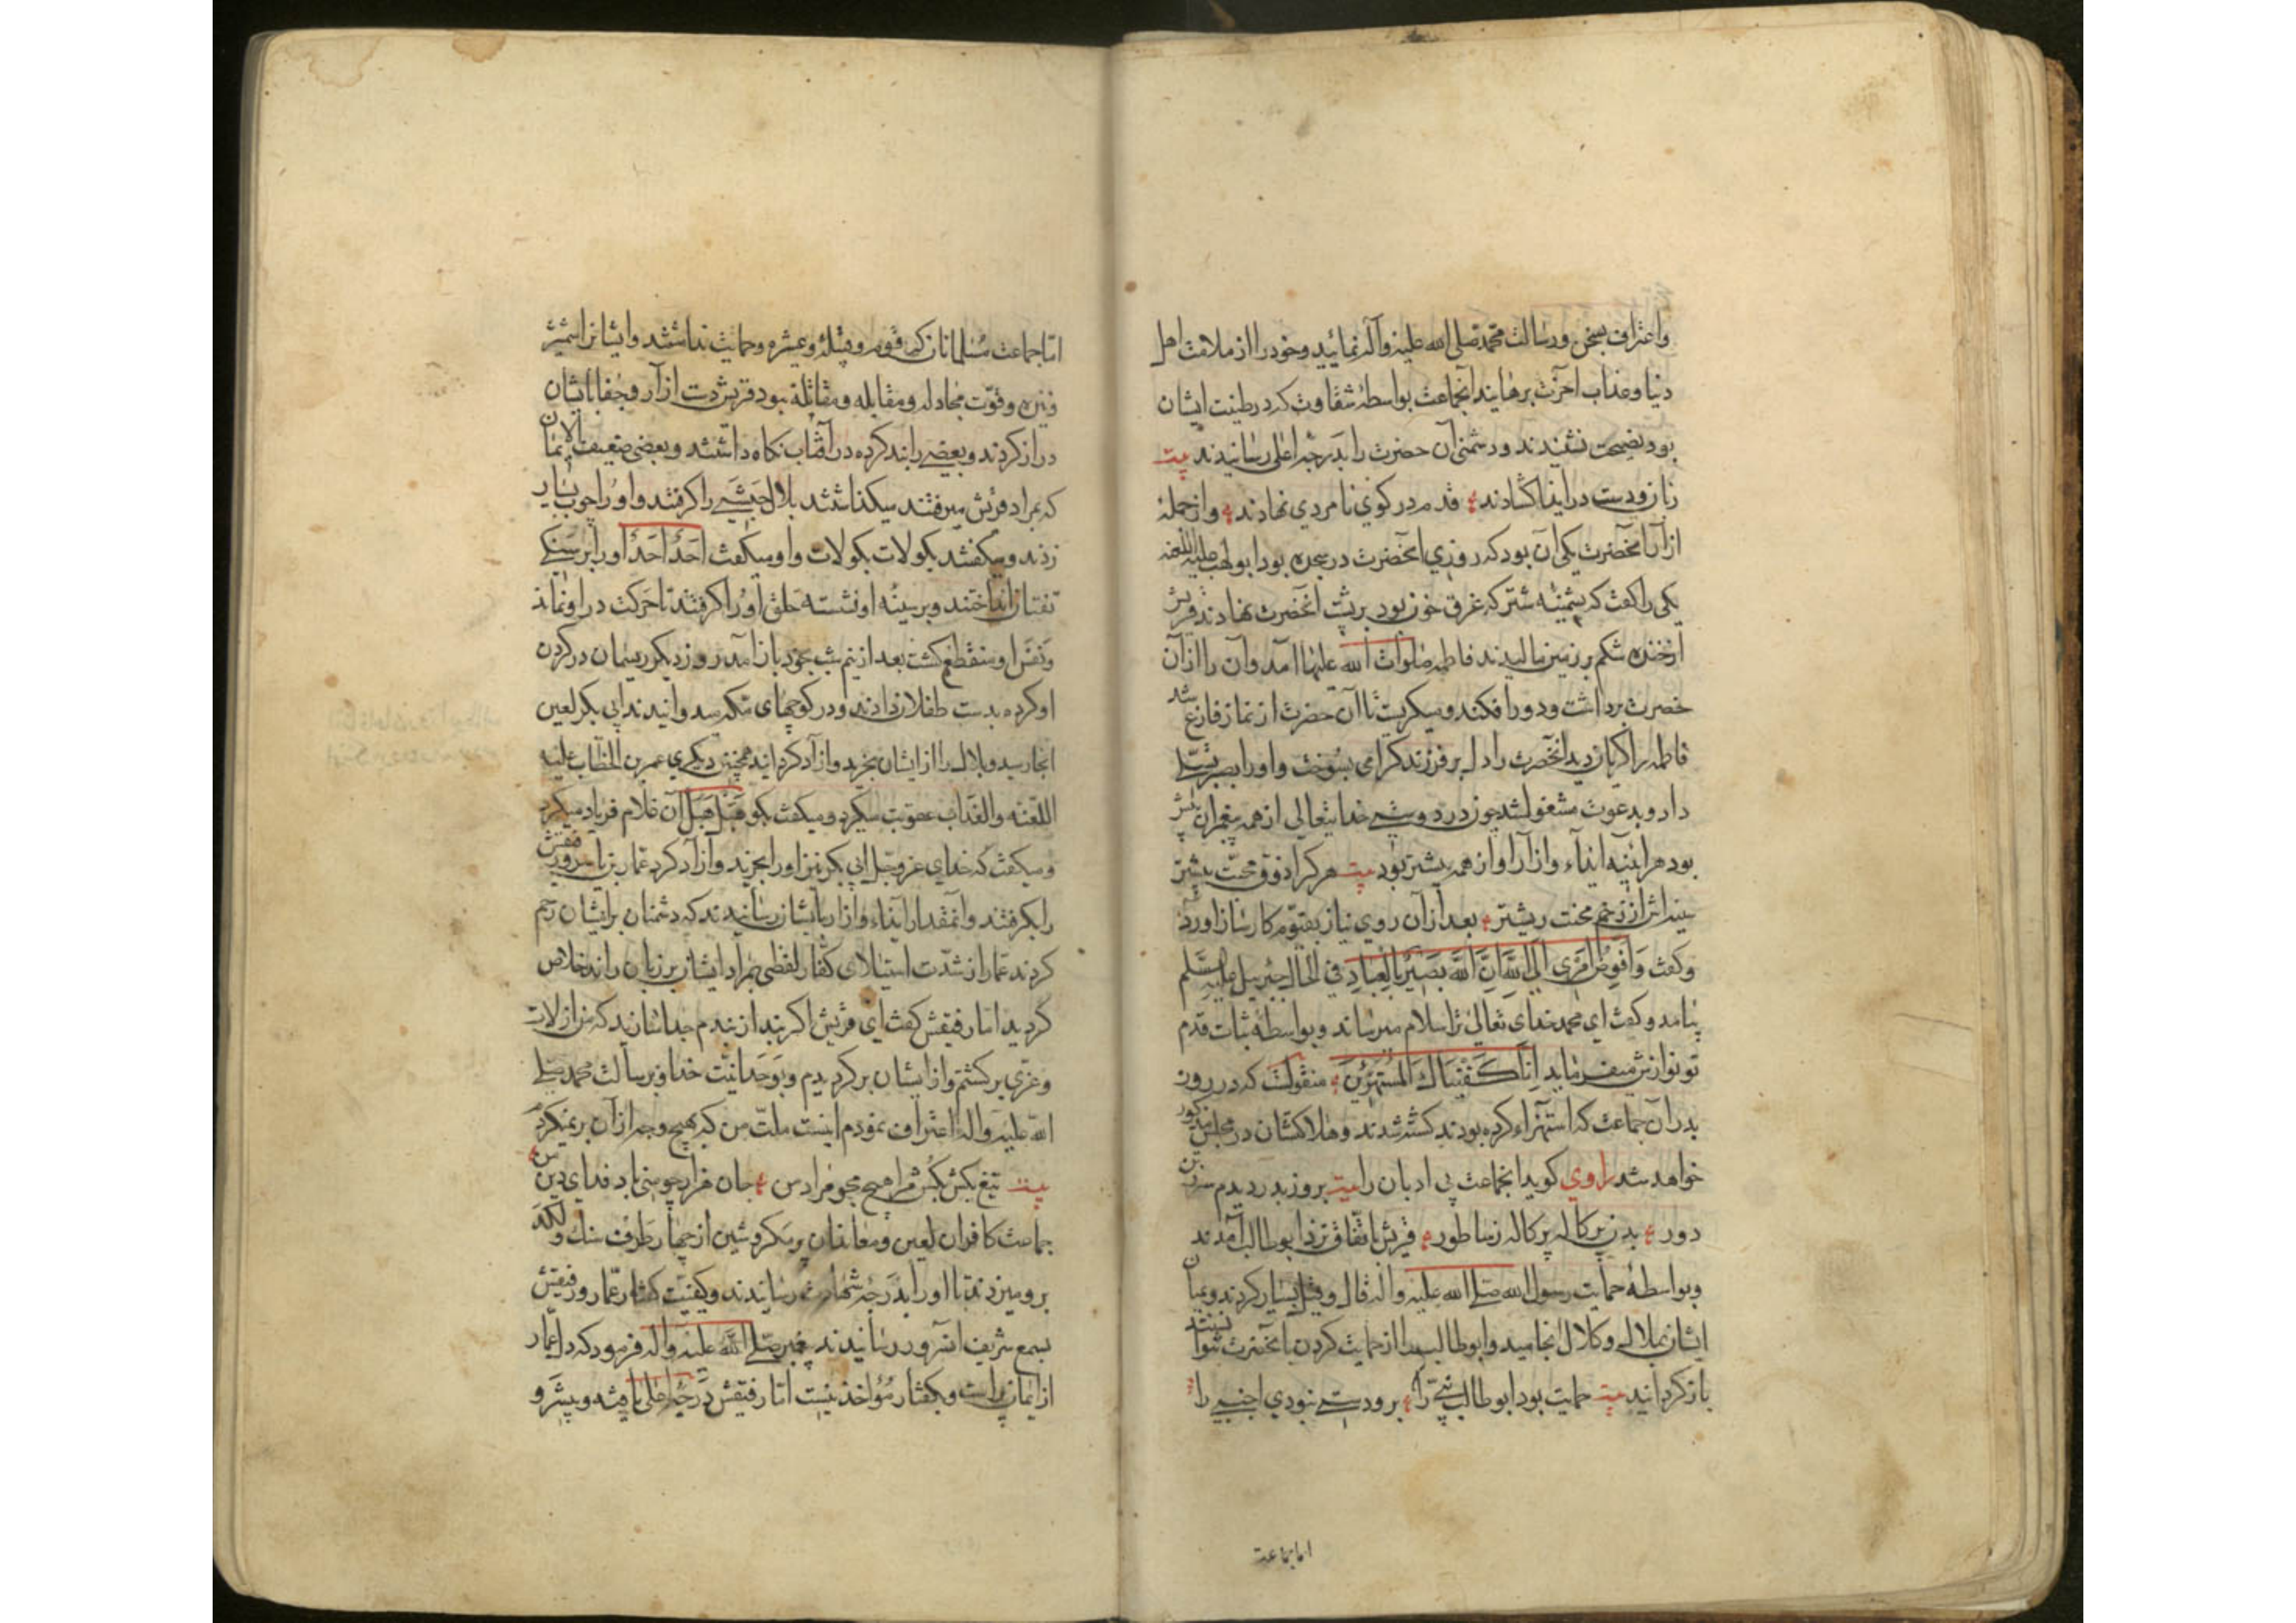 واعتراف بسخن ورسالت محمد صلی الله علیه وآله نمائید وخود را از ملامت اهل
دنیا وعذاب آخرت برهانید آنجماعت بواسطهٔ شقاوت که در طینت ایشان
بود نصیحت نشنیدند ودشمنی آن حضرت را بدرجهٔ اعلی رسانیدند بیت
زبان ودست در ایذا گشادند قدم در کوی نامردی نهادند واز جملهٔ
ازار آنحضرت یکی آن بود که روزی آنحضرت در سجده بود ابولهب علیه اللعنه
یکی را گفت که پشمینهٔ شتر که غرق خون بود بر پشت آنحضرت نهادند قریش
از خنده شکم بر زمین مالیدند فاطمه صلوات الله علیها آمد وآن را از آن
حضرت برداشت ودور افکند ومیگریست تا آن حضرت از نماز فارغ شد
فاطمه را گریان دید آنحضرت را دل بر فرزند گرامی بسوخت واورا بصبر تسلی
داد وبدعوت مشغول شد چون در دوستی خدایتعالی از همه پیغمبران پیش
بود هر آئینه ایذاء وازار او از همه بیشتر بود بیت هرکرا ذوق محبت بیشتر
سینه اش از زخم محنت ریشتر بعد از آن روی نیاز بقیوم کارساز آورد
وگفت وَاُفَوِّضُ اَمْرِی اِلَی اللهِ اِنَّ اللهَ بَصِیرٌ بِالْعِبَادِ فی الحال جبرییل علیه السلم
بیامد وگفت ای محمد خدای تعالی ترا سلام میرساند وبواسطهٔ ثبات قدم
تو نوازش میفرماید اِنَّا کَفَیْنَاكَ الْمُسْتَهْزِئینَ منقولست که در روز
بدر آن جماعت که استهزاء کرده بودند کشته شدند وهلاکشان در مجلس مذکور
خواهد شد راوی گوید آنجماعت بی ادبان را بیت بروز بدر دیدم سر ز تن
دور بدن پرکاله پرکاله ز ساطور قریش باتفاق نزد ابوطالب آمدند
وبواسطهٔ حمایت رسول الله صلی الله علیه وآله قال وقیل بسیار کردند ومیان
ایشان بملال وکلال انجامید وابوطالب را از حمایت کردن با آنحضرت نتوانستند
بازگردانید بیت حمایت بود ابوطالب شیخ را برو دستی نبودی اجنبی را
اما جماعت
اما جماعت مسلمانان که قوم وقبیله وعشیره وحمایت نداشتند وایشانرا شمشیر
ونیزه وقوّت مجادله ومقابله ومقاتله نبود قریش دست ازار وجفا بایشان
دراز کردند وبعضی را بند کرده در آفتاب نگاه داشتند وبعضی ضعیف الایمان
که بمراد قریش میرفتند میگذاشتند بلال حبشی را گرفتند واورا چوب بسیار
زدند ومیگفتند بگو لات بگو لات واو میگفت اَحَدٌ اَحَدٌ اورا بر سنگی
تفتان انداختند وبر سینهٔ او نشسته حلق اورا گرفتند تا حرکت در او نماند
ونفس او منقطع گشت بعد از نیم شب بخود باز آمد روز دیگر ریسمان در گردن
او کرده بدست طفلان دادند ودر کوچهای مکه میدوانیدند ابی بکر لعین
آنجا رسید وبلال را از ایشان بخرید وآزاد گردانید همچنین دیگری عمر بن الخطاب علیه
اللعنه والعذاب عقوبت میکرد ومیگفت بگو هُبَل هُبَل آن غلام فریاد میکرد
ومیگفت که خدای عز وجل ابی بکر نیز اورا بخرید وآزاد کرد عمار بن یاسر ورفیقش
را بگرفتند وآنمقدار ایذاء وازار بایشان رسانیدند که دشمنان بر ایشان رحم
کردند عمار از شدّت استیلای کفار لفظی بمراد ایشان بر زبان راند خلاص
گردید اما رفیقش گفت ای قریش اگر بند از بندم جدا سازند که من از لات
وعزی برگشتم واز ایشان برگردیدم وبوَحدانیت خدا وبرسالت محمد صلی
الله علیه وآله اعتراف نمودم اینست ملّت من که بهیچ وجه از آن برنمیگردم
بیت تیغ بکش بکُش مرا هیچ مجو مراد من جان هزار چو منی باد فدای دین من
جماعت کافران لعین ومعاندان پر مکر وشین از چهار طرف سنگ ولکد
برو میزدند تا اورا بدرجهٔ شهادت رسانیدند وکیفیّت گفتار عمّار ورفیقش
بسمع شریف آنسرور رسانیدند پیغمبر صلی الله علیه وآله فرمود که دل عمار
از ایمان پر است وبگفتار مُؤاخذ نیست اما رفیقش دَرجهٔ اعلی یافته وپیشرو